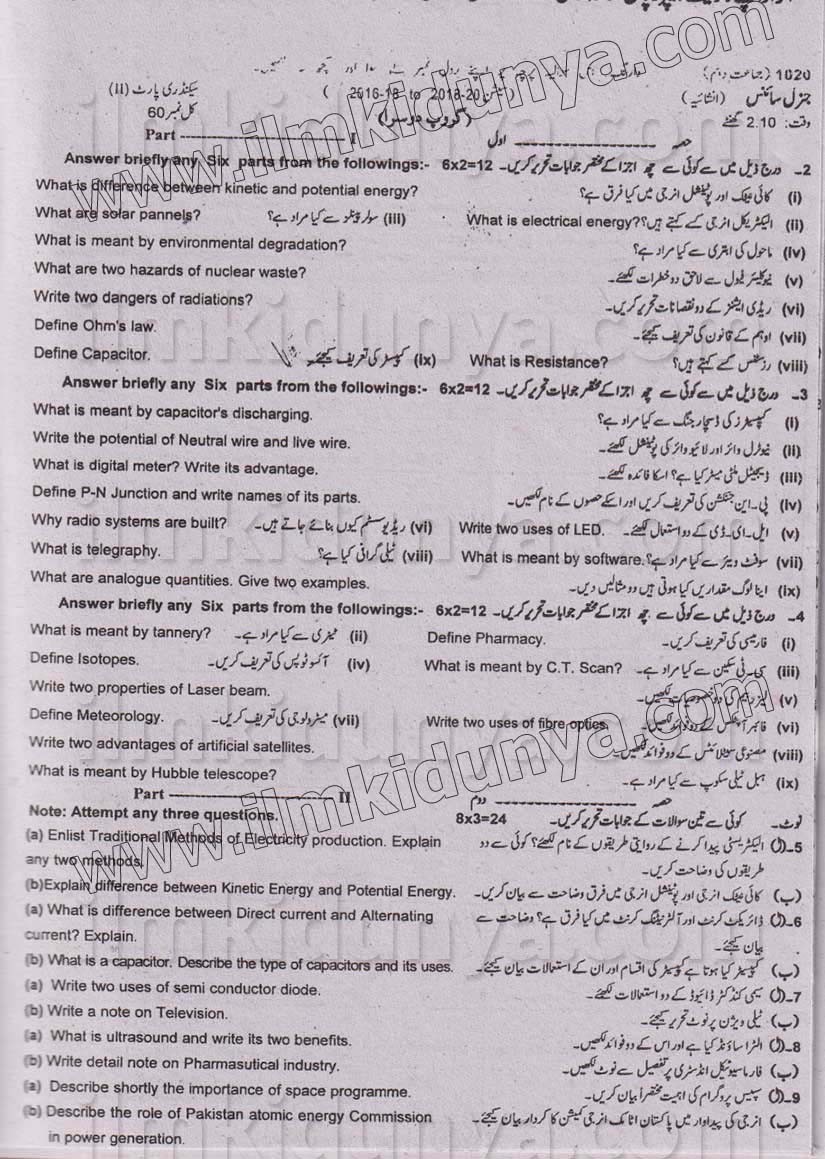 1020 (جماعت دہم)
جنرل سائنس (انشائیہ) (سیشن 2016-18 to 2018-20) سیکنڈری پارٹ (II)
وقت: 2.10 گھنٹے (گروپ دوسرا) کل نمبر 60
Part ---------------- I حصہ ---------------- اول
Answer briefly any Six parts from the followings:- 6x2=12 2۔ درج ذیل میں سے کوئی سے چھ اجزا کے مختصر جوابات تحریر کریں۔
What is difference between kinetic and potential energy? (i) کائی نیٹک اور پوٹینشل انرجی میں کیا فرق ہے؟
What are solar pannels? (iii) سولر پینلز سے کیا مراد ہے؟ What is electrical energy? (ii) الیکٹریکل انرجی کسے کہتے ہیں؟
What is meant by environmental degradation? (iv) ماحول کی ابتری سے کیا مراد ہے؟
What are two hazards of nuclear waste? (v) نیوکلیئر فیول سے لاحق دو خطرات لکھئے۔
Write two dangers of radiations? (vi) ریڈی ایشنز کے دو نقصانات تحریر کریں۔
Define Ohm's law. (vii) اوہم کے قانون کی تعریف کیجئے۔
Define Capacitor. (ix) کپیسٹر کی تعریف کیجئے۔ What is Resistance? (viii) رزسٹنس کسے کہتے ہیں؟
Answer briefly any Six parts from the followings:- 6x2=12 3۔ درج ذیل میں سے کوئی سے چھ اجزا کے مختصر جوابات تحریر کریں۔
What is meant by capacitor's discharging. (i) کپیسٹرز کی ڈسچارجنگ سے کیا مراد ہے؟
Write the potential of Neutral wire and live wire. (ii) نیوٹرل وائر اور لائیو وائر کی پوٹینشل لکھئے۔
What is digital meter? Write its advantage. (iii) ڈیجیٹل ملٹی میٹر کیا ہے؟ اسکا فائدہ لکھئے۔
Define P-N Junction and write names of its parts. (iv) پی۔این جنکشن کی تعریف کریں اور اسکے حصوں کے نام لکھیں۔
Why radio systems are built? (vi) ریڈیو سسٹم کیوں بنائے جاتے ہیں۔ Write two uses of LED. (v) ایل۔ای۔ڈی کے دو استعمال لکھئے۔
What is telegraphy. (viii) ٹیلی گرافی کیا ہے؟ What is meant by software. (vii) سوفٹ ویئر سے کیا مراد ہے؟
What are analogue quantities. Give two examples. (ix) اینالوگ مقداریں کیا ہوتی ہیں دو مثالیں دیں۔
Answer briefly any Six parts from the followings:- 6x2=12 4۔ درج ذیل میں سے کوئی سے چھ اجزا کے مختصر جوابات تحریر کریں۔
What is meant by tannery? (ii) ٹینری سے کیا مراد ہے۔ Define Pharmacy. (i) فارمیسی کی تعریف کریں۔
Define Isotopes. (iv) آئسوٹوپس کی تعریف کریں۔ What is meant by C.T. Scan? (iii) سی۔ٹی سکین سے کیا مراد ہے۔
Write two properties of Laser beam. (v) لیزر بیم کی دو خصوصیات لکھیں۔
Define Meteorology. (vii) میٹرولوجی کی تعریف کریں۔ Write two uses of fibre optics. (vi) فائبر آپٹکس کے دو فوائد لکھیں۔
Write two advantages of artificial satellites. (viii) مصنوعی سیٹلائٹس کے دو فوائد لکھئے۔
What is meant by Hubble telescope? (ix) ہبل ٹیلی سکوپ سے کیا مراد ہے۔
Part ---------------- II حصہ ---------------- دوم
Note: Attempt any three questions. 8x3=24 نوٹ۔ کوئی سے تین سوالات کے جوابات تحریر کریں۔
(a) Enlist Traditional Methods of Electricity production. Explain 5۔(ا) الیکٹریسٹی پیدا کرنے کے روایتی طریقوں کے نام لکھئے؟ کوئی سے دو
any two methods. طریقوں کی وضاحت کریں۔
(b)Explain difference between Kinetic Energy and Potential Energy. (ب) کائی نیٹک انرجی اور پوٹینشل انرجی میں فرق وضاحت سے بیان کریں۔
(a) What is difference between Direct current and Alternating 6۔(ا) ڈائریکٹ کرنٹ اور آلٹرنیٹنگ کرنٹ میں کیا فرق ہے؟ وضاحت سے
current? Explain. بیان کیجئے۔
(b) What is a capacitor. Describe the type of capacitors and its uses. (ب) کپیسٹر کیا ہوتا ہے کپیسٹر کی اقسام اور ان کے استعمالات بیان کیجئے۔
(a) Write two uses of semi conductor diode. 7۔(ا) سیمی کنڈکٹر ڈائیوڈ کے دو استعمالات لکھئے۔
(b) Write a note on Television. (ب) ٹیلی ویژن پر نوٹ تحریر کیجئے۔
(a) What is ultrasound and write its two benefits. 8۔(ا) الٹرا ساؤنڈ کیا ہے اور اس کے دو فوائد لکھیں۔
(b) Write detail note on Pharmasutical industry. (ب) فارماسیوٹیکل انڈسٹری پر تفصیل سے نوٹ لکھیں۔
(a) Describe shortly the importance of space programme. 9۔(ا) سپیس پروگرام کی اہمیت مختصراً بیان کریں۔
(b) Describe the role of Pakistan atomic energy Commission (ب) انرجی کی پیداوار میں پاکستان اٹامک انرجی کمیشن کا کردار بیان کیجئے۔
in power generation.
www.ilmkidunya.com
www.ilmkidunya.com
ilmkidunya.com